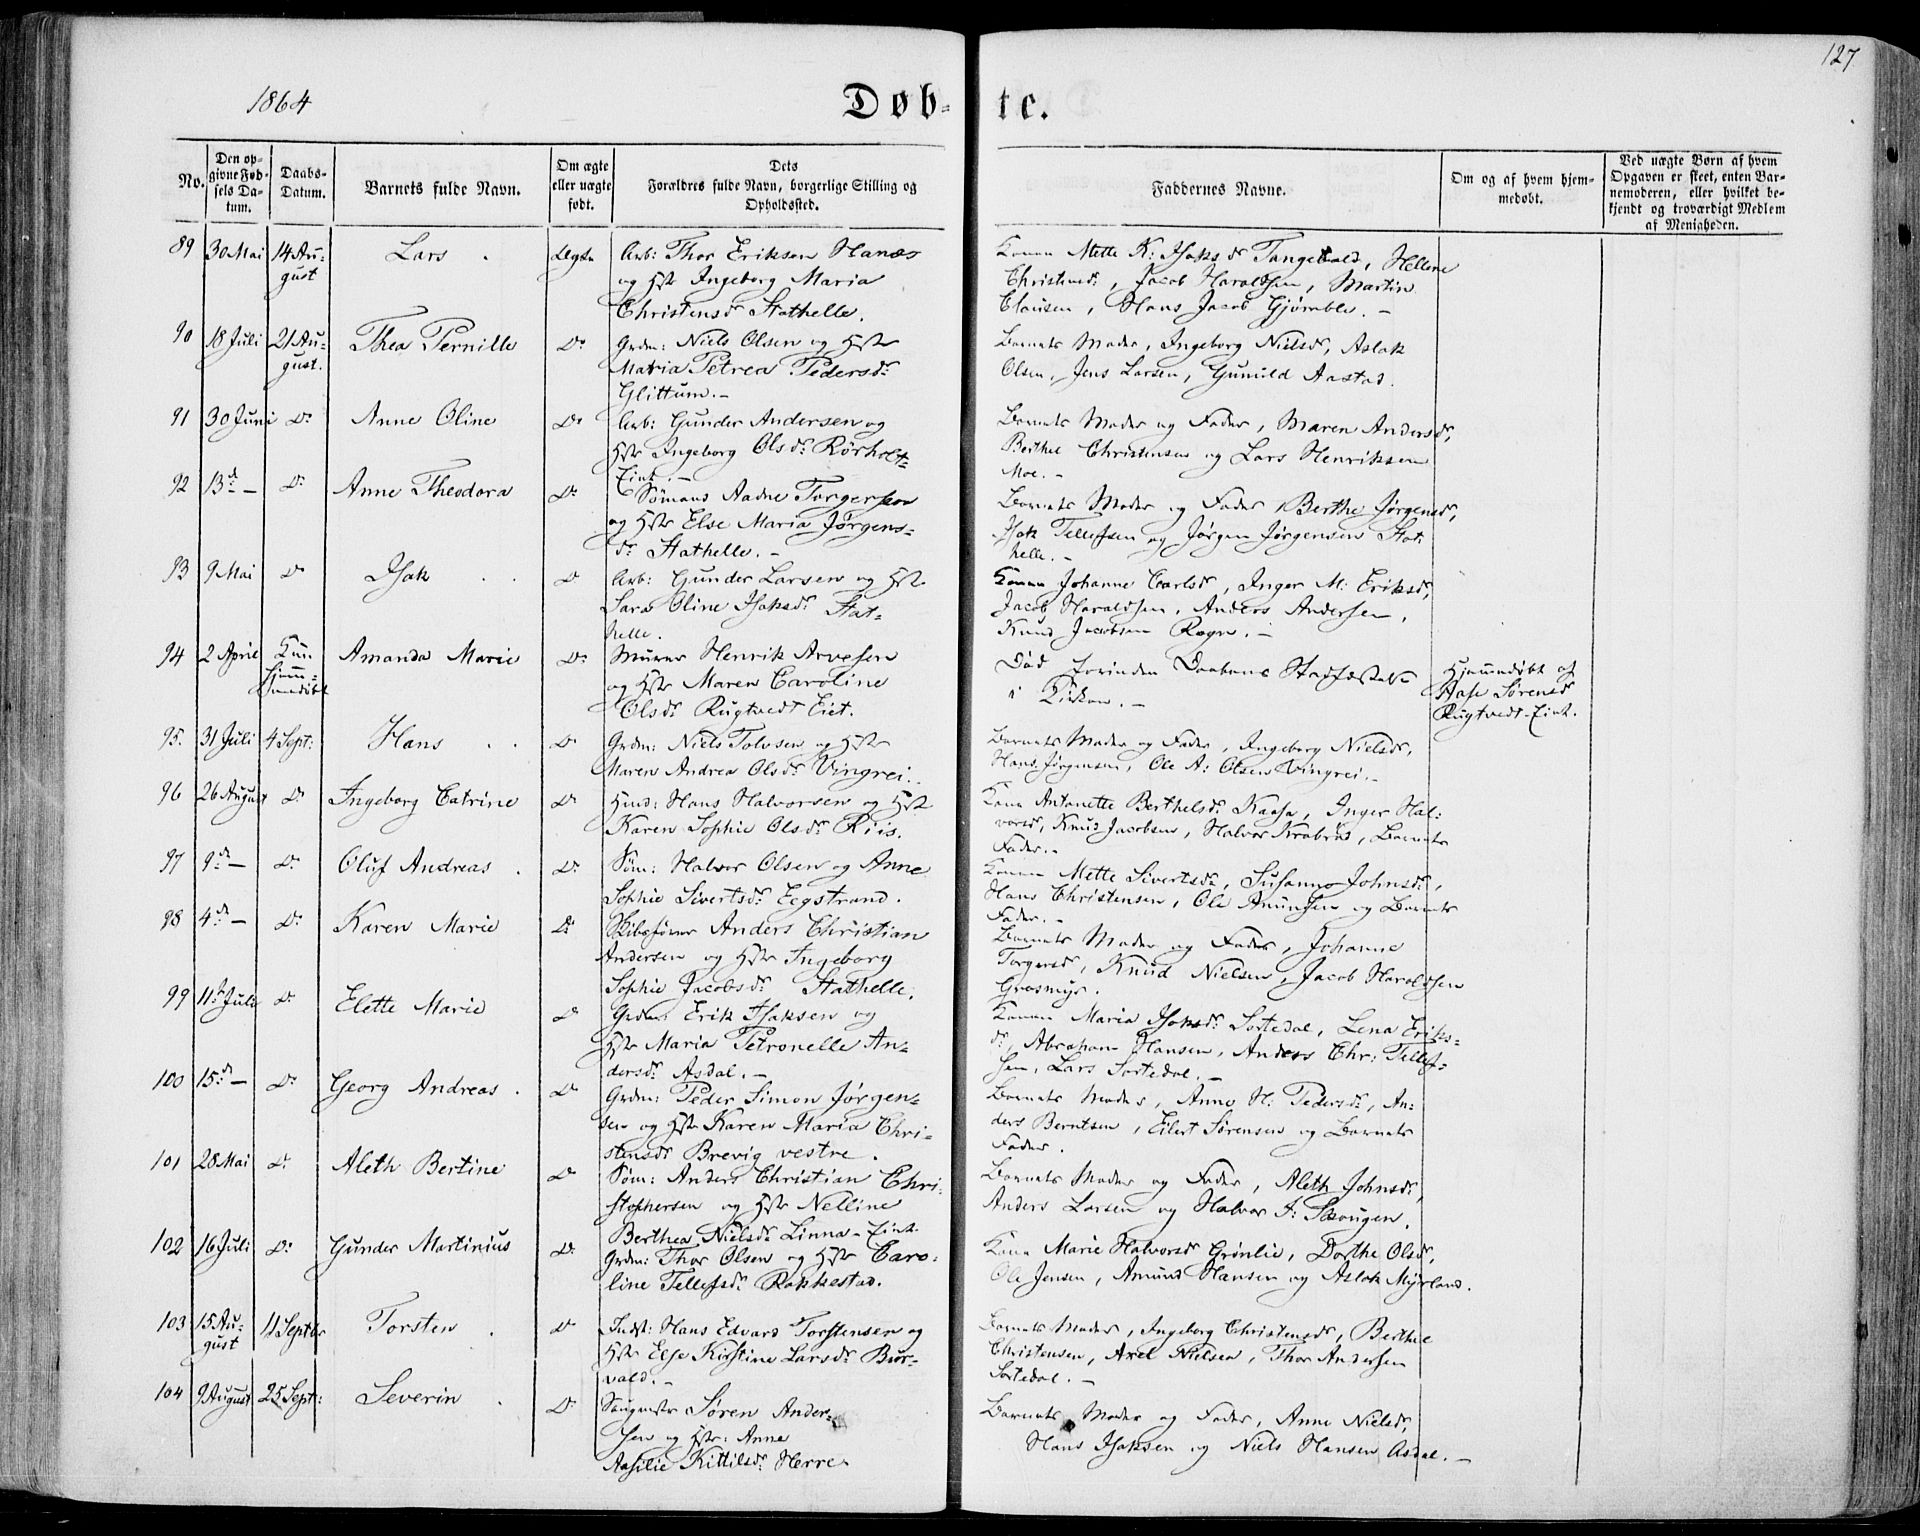 127
1864
Døb- te.
No.
Den op-
givne Fød-
sels Da-
tum.
Daabs-
Datum.
Barnets fulde Navn.
Om ægte
eller uægte
født.
Dets
Forældres fulde Navn, borgerlige Stilling og
Opholdssted.
Faddernes Navne.
Om og af hvem hjem-
medøbt.
Ved uægte Børn af hvem
Opgaven er skeet, enten Bar-
nemoderen, eller hvilket be-
kjendt og troværdigt Medlem
af Menigheden.
89 30 Mai 14 Au-
gust Lars Ægte Arb: Thor Eriksen Hanæs
og Hst Ingeborg Maria
Christensdr Stathelle.
Konen Mette K: Isaksdr Tangevald, Hellene
Christensdr, Jacob Haraldsen, Martin
Clausen, Hans Jacob Gjømble. -
90 18 Juli 21 Au-
gust. Thea Pernille Do Grdm: Niels Olsen og Hst
Maria Petrea Pedersdr
Glittum. -
Barnets Moder, Ingeborg Nielsdr, Aslak
Olsen, Jens Larsen, Gunuld Aastad.
91 30 Juni Do Anne Oline Do Arb: Gunder Andersen og
Hst Ingeborg Olsdr Rörholt-
Eiet. -
Barnets Moder og Fader, Maren Andersdr,
Berthe Christensen og Lars Henriksen
Moe. -
92 13de - Do Anne Theodora Do Sömand Aadne Torgersen
og Hst Else Maria Jørgens-
dr Stathelle. -
Barnets Moder og Fader, Berthe Jørgensdr,
Isak Tellefsen og Jørgen Jørgensen Stat-
helle. -
93 9 Mai Do Isak Do Arb: Gunder Larsen og Hst
Sara Oline Isaksdr Stat-
helle.
Konen Johanne Carlsdr, Inger M: Eriksdr,
Jacob Haraldsen, Anders Andersen,
Knud Jacobsen Rogn. -
94 2 April Kun
hjem-
medøbt Amanda Marie Do Murer Henrik Arvesen
og Hst Maren Caroline
Olsdr Rugtvedt Eiet.
Død forinden Daabens Stadfæstelse
i Kirken. -
Hjemmedøbt af
Aase Sørensdr
Rugtvedt-Eiet.
95. 31 Juli 4 Sept: Hans Do Grdm: Niels Tolvsen og Hst
Maren Andrea Olsdr Vingrei.
Barnets Moder og Fader, Ingeborg Nielsdr,
Hans Jørgensen, Ole A: Olsen Vingrei. -
96 26 August Do Ingeborg Catrine Do Hmd: Hans Halvorsen og Hst
Karen Sophie Olsdr Riis.
Kone Antonette Berthelsdr Kaasa, Inger Hal-
vorsdr, Knud Jacobsen, Halvor Krabrød, Barnets
Fader. -
97 9de - Do Oluf Andreas Do Søm: Halvor Olsen og Anne
Sophie Sivertsdr Eegstrand.
Konen Mette Sivertsdr, Susanne Johnsdr,
Hans Christensen, Ole Amundsen og Barnets
Fader. -
98 4de - Do Karen Marie Do Skibsfører Anders Christian
Andersen og Hst Ingeborg
Sophie Jacobsdr Stathelle.
Barnets Moder og Fader, Johanne
Torgersdr, Knud Nielsen, Jacob Haraldsen
Grasmyr.
99 11te Juli Do Elette Marie Do Grdm: Erik Isaksen og
Hst Maria Petronelle An-
dersdr Asdal. -
Konen Maria Isaksdr Sortedal, Lena Eriks-
dr, Abraham Hansen, Anders Chr: Tellef-
sen, Lars Sortedal. -
100 15de - Do Georg Andreas Do Grdm: Peder Simon Jørgen-
sen og Hst Karen Maria Chri-
stensdr Brevig vestre.
Barnets Moder, Anne H: Pedersdr, An-
ders Berntsen, Eilert Sørensen og Barnets
Fader.
101 28 Mai Do Aleth Bertine Do Søm: Anders Christian Chri-
stophersen og Hst Nelline
Berthea Nielsdr Linna-Eiet
Barnets Moder og Fader, Aleth Johnsdr,
Anders Larsen og Halvor J: Skougen.
102 16 Juli Do Gunder Martinius Do Grdm: Thor Olsen og Hst Caro-
line Tellefsdr Rakkestad.
Kone Marie Halvorsdr Grönlie, Dorthe Olsdr,
Ole Jensen, Amund Hansen og Aslak Myrland.
103 15 Au-
gust 11 Septbr Torsten Do Indst: Hans Edvard Torstensen og
Hst Else Kirstine Larsdr Bur-
vald. -
Barnets Moder, Ingeborg Christensdr, Berthe
Christensen, Axel Nielsen, Thor Andersen
Sortedal. -
104 9 August 25 Sept: Severin Do Saugmester Søren Ander-
sen og Hst: Anne
Aasilie Kittilsdr Herre
Barnets Moder og Fader, Anne Nielsdr,
Hans Isaksen og Niels Hansen Asdal. -